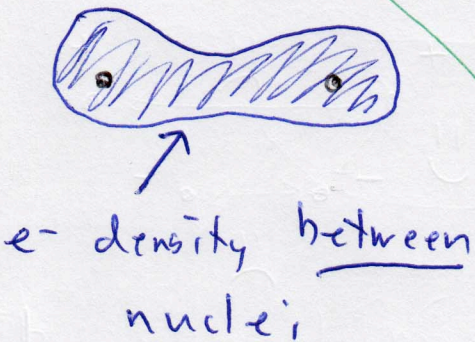 e- density between
nuclei